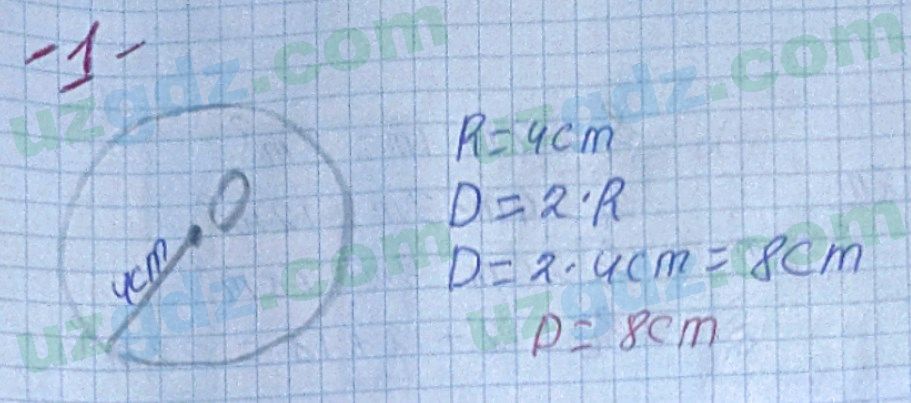 -1-
uzgdz.com
uzgdz.com
R=4cm
O
D=2·R
4cm
D=2·4cm=8cm
uzgdz.com
uzgdz.com
D=8cm